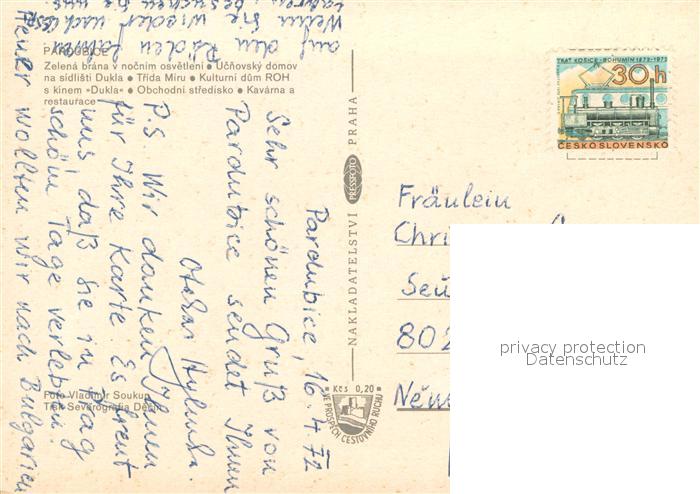 PARDUBICE
Zelená brána v nočním osvětlení ● Učňovský domov
na sídlišti Dukla ● Třída Míru ● Kulturní dům ROH
s kinem »Dukla« ● Obchodní středisko ● Kavárna a
restaurace
Foto Vladimír Soukup
Tisk Severografia Děčín
NAKLADATELSTVÍ PRESSFOTO PRAHA
Kčs 0,20
VE PROSPĚCH CESTOVNÍHO RUCHU
TRAŤ KOŠICE - BOHUMÍN 1872-1972
30 h
ČESKOSLOVENSKO
Pardubice, 16. 4. 72
Sehr schönen Gruß von
Pardubice sendet Ihnen
Otakar
P.S. Wir danken Ihnen
für Ihre Karte. Es freut
uns, daß Sie in Prag
schöne Tage verleben.
Heuer wollten wir nach Bulgarien
auf den fahren
Wenn Sie wieder nach ČSSR
fahren, besuchen Sie uns
Fräulein
Chri
802
Něm
privacy protection
Datenschutz